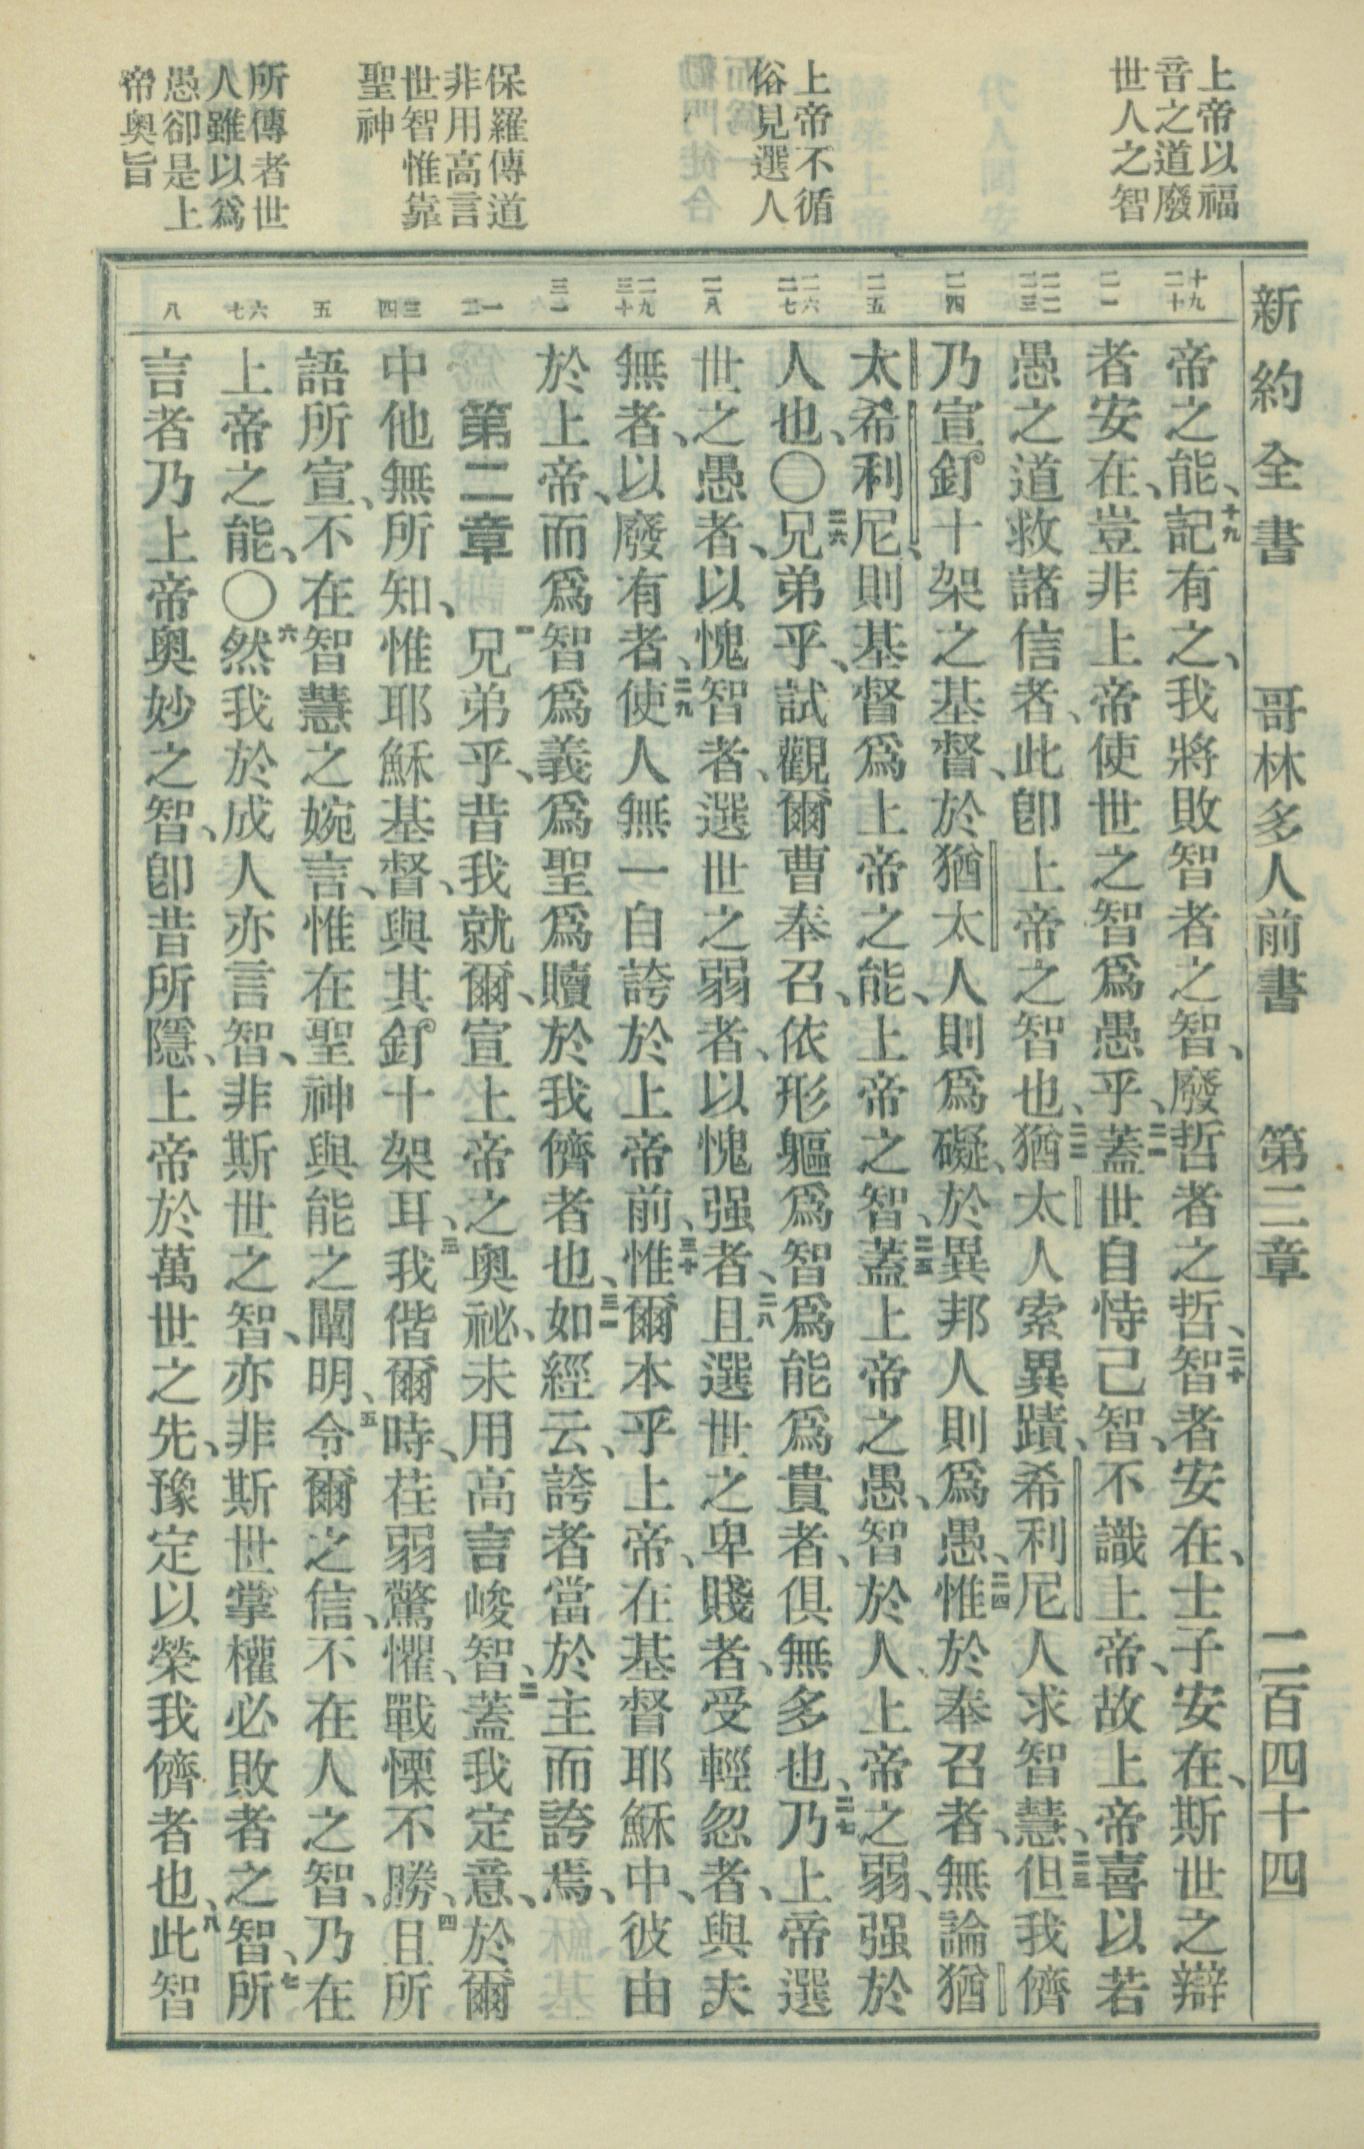 上帝以福
音之道廢
世人之智
上帝不循
俗見選人
保羅傳道
非用高言
世智惟靠
聖神
所傳者世
人雖以爲
愚卻是上
帝奧旨
新約全書 哥林多人前書 第二章 二百四十四
十九 二十
二一
二二 二三
二四
二五
二六 二七
二八
二九 三十
三一
一 二
三 四
五
六 七
八
帝之能、十九記有之、我將敗智者之智、廢哲者之哲、二十智者安在、士子安在、斯世之辯
者安在、豈非上帝使世之智爲愚乎、二一蓋世自恃己智、不識上帝、故上帝喜以若
愚之道救諸信者、此卽上帝之智也、二二猶太人索異蹟、希利尼人求智慧、二三但我儕
乃宣釘十架之基督、於猶太人則爲礙、於異邦人則爲愚、二四惟於奉召者、無論猶
太希利尼、則基督爲上帝之能、上帝之智、二五蓋上帝之愚、智於人、上帝之弱、强於
人也、〇二六兄弟乎、試觀爾曹奉召、依形軀爲智爲能爲貴者、俱無多也、二七乃上帝選
世之愚者、以愧智者、選世之弱者、以愧强者、二八且選世之卑賤者、受輕忽者、與夫
無者、以廢有者、二九使人無一自誇於上帝前、三十惟爾本乎上帝、在基督耶穌中、彼由
於上帝、而爲智爲義爲聖爲贖於我儕者也、三一如經云、誇者當於主而誇焉、
第二章 一兄弟乎、昔我就爾、宣上帝之奧祕、未用高言峻智、二蓋我定意、於爾
中他無所知、惟耶穌基督、與其釘十架耳、三我偕爾時、荏弱驚懼、戰慄不勝、四且所
語所宣、不在智慧之婉言、惟在聖神與能之闡明、五令爾之信、不在人之智、乃在
上帝之能、〇六然我於成人亦言智、非斯世之智、亦非斯世掌權必敗者之智、七所
言者乃上帝奧妙之智、卽昔所隱、上帝於萬世之先、豫定以榮我儕者也、八此智